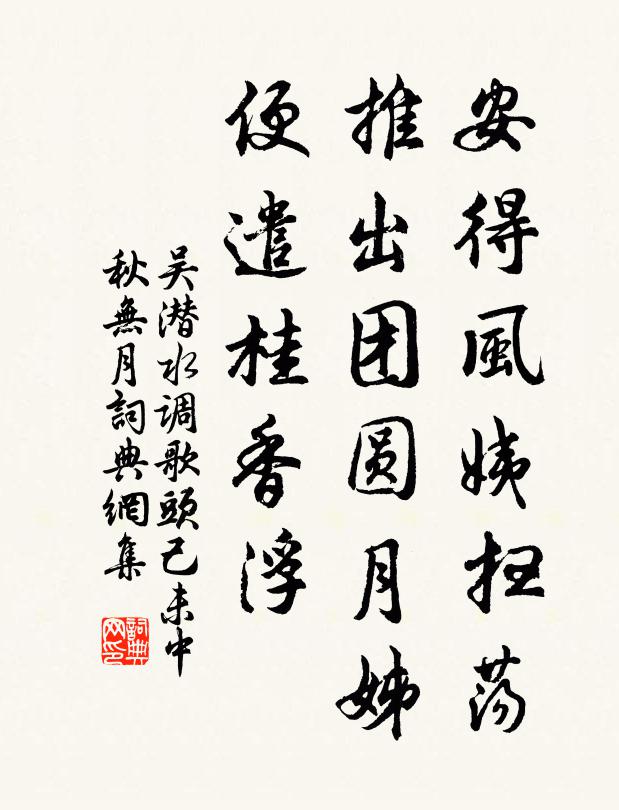 安得風姨扫荡
推出团圆月姊
便遣桂香浮
吴潜水调歌頭己未中
秋無月詞典網集
詞典网印